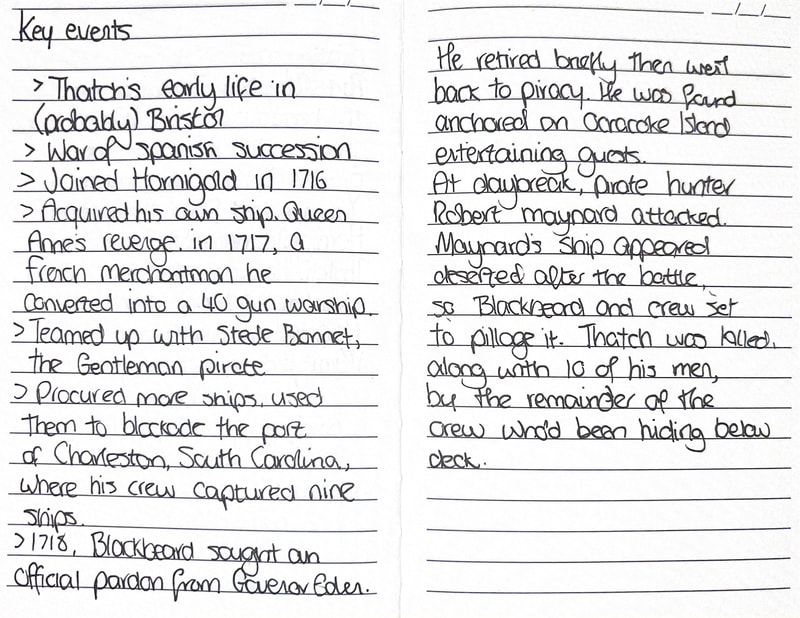 Key events
> Thatch's early life in
(probably) Bristol
> War of spanish succession
> Joined Hornigold in 1716
> Acquired his own ship, Queen
Anne's revenge, in 1717, a
french merchantman he
converted into a 40 gun warship.
> Teamed up with Stede Bonnet,
the Gentleman pirate
> Procured more ships, used
them to blockade the port
of Charleston, South Carolina,
where his crew captured nine
ships.
> 1718, Blackbeard sought an
official pardon from Goveror Eden.
He retired briefly then went
back to piracy. He was found
anchored on Ocracoke Island
entertaining guests.
At daybreak, pirate hunter
Robert maynard attacked.
Maynard's ship appeared
deserted after the battle,
so Blackbeard and crew set
to pillage it. Thatch was killed,
along with 10 of his men,
by the remainder of the
crew who'd been hiding below
deck.